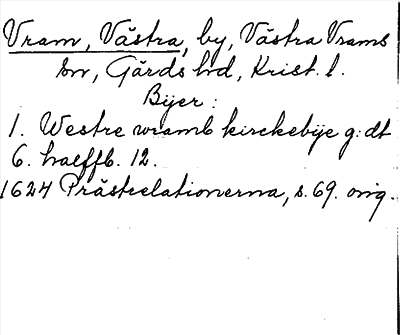 Vram, Västra, by, Västra Vrams
sn, Gärds hd, Krist. l.
Bijer:
1. Westre wramb kirckebije g: dt
6. halffb. 12.
1624 Prästrelationerna, s. 69. orig.